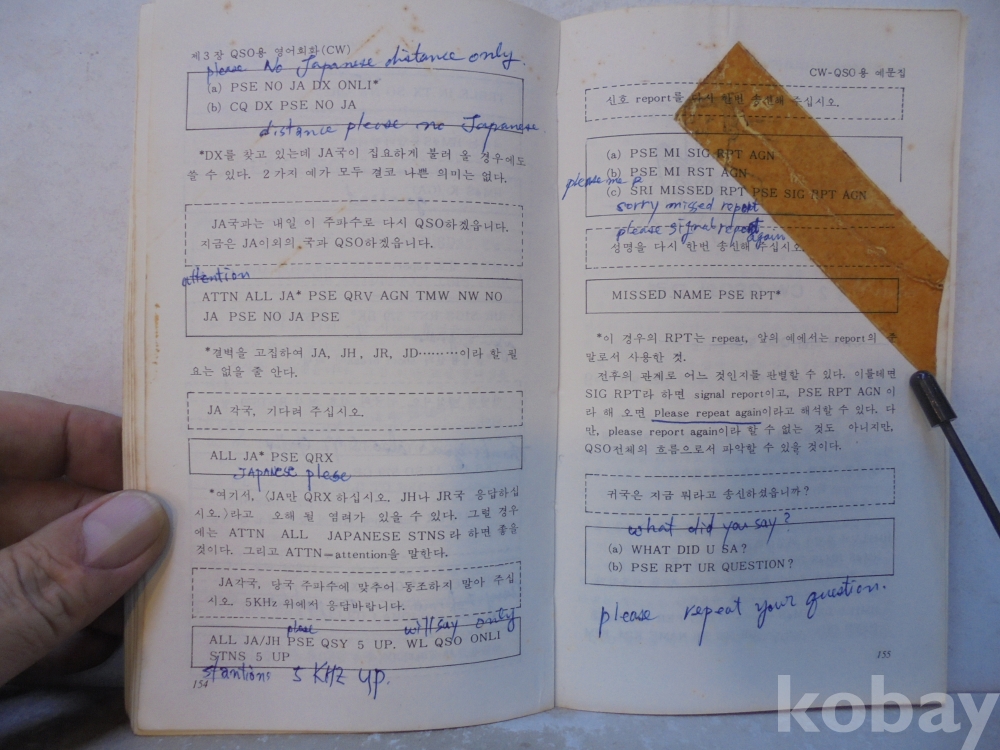 제3장 QSO용 영어회화(CW)
please No Japanese distance only
(a) PSE NO JA DX ONLI*
(b) CQ DX PSE NO JA
distance please no Japanese
*DX를 찾고 있는데 JA국이 집요하게 불러 올 경우에도
쓸 수 있다. 2가지 예가 모두 결코 나쁜 의미는 없다.
JA국과는 내일 이 주파수로 다시 QSO하겠읍니다.
지금은 JA이외의 국과 QSO하겠읍니다.
attention
ATTN ALL JA* PSE QRV AGN TMW NW NO
JA PSE NO JA PSE
*결벽을 고집하여 JA, JH, JR, JD………이라 할 필
요는 없을 줄 안다.
JA 각국, 기다려 주십시오.
ALL JA* PSE QRX
JAPANESE please
*여기서, 〈JA만 QRX 하십시오, JH나 JR국 응답하십
시오.〉라고 오해 될 염려가 있을 수 있다. 그럴 경우
에는 ATTN ALL JAPANESE STNS라 하면 좋을
것이다. 그리고 ATTN=attention을 말한다.
JA각국, 당국 주파수에 맞추어 동조하지 말아 주십
시오. 5KHz 위에서 응답바랍니다.
please will say only
ALL JA/JH PSE QSY 5 UP. WL QSO ONLI
STNS 5 UP
stantions 5 KHZ up.
154
CW-QSO용 예문집
신호 report를 다시 한번 송신해 주십시오.
(a) PSE MI SIG RPT AGN
(b) PSE MI RST AGN
please me
(c) SRI MISSED RPT PSE SIG RPT AGN
sorry missed report
please signal report
again
성명을 다시 한번 송신해 주십시오
MISSED NAME PSE RPT*
*이 경우의 RPT는 repeat, 앞의 예에서는 report의
말로서 사용한 것.
전후의 관계로 어느 것인지를 판별할 수 있다. 이를테면
SIG RPT라 하면 signal report이고, PSE RPT AGN이
라 해 오면 please repeat again이라고 해석할 수 있다. 다
만, please report again이라 할 수 없는 것도 아니지만,
QSO전체의 흐름으로서 파악할 수 있을 것이다.
귀국은 지금 뭐라고 송신하셨읍니까?
what did you say?
(a) WHAT DID U SA?
(b) PSE RPT UR QUESTION?
please repeat your question.
155
kobay